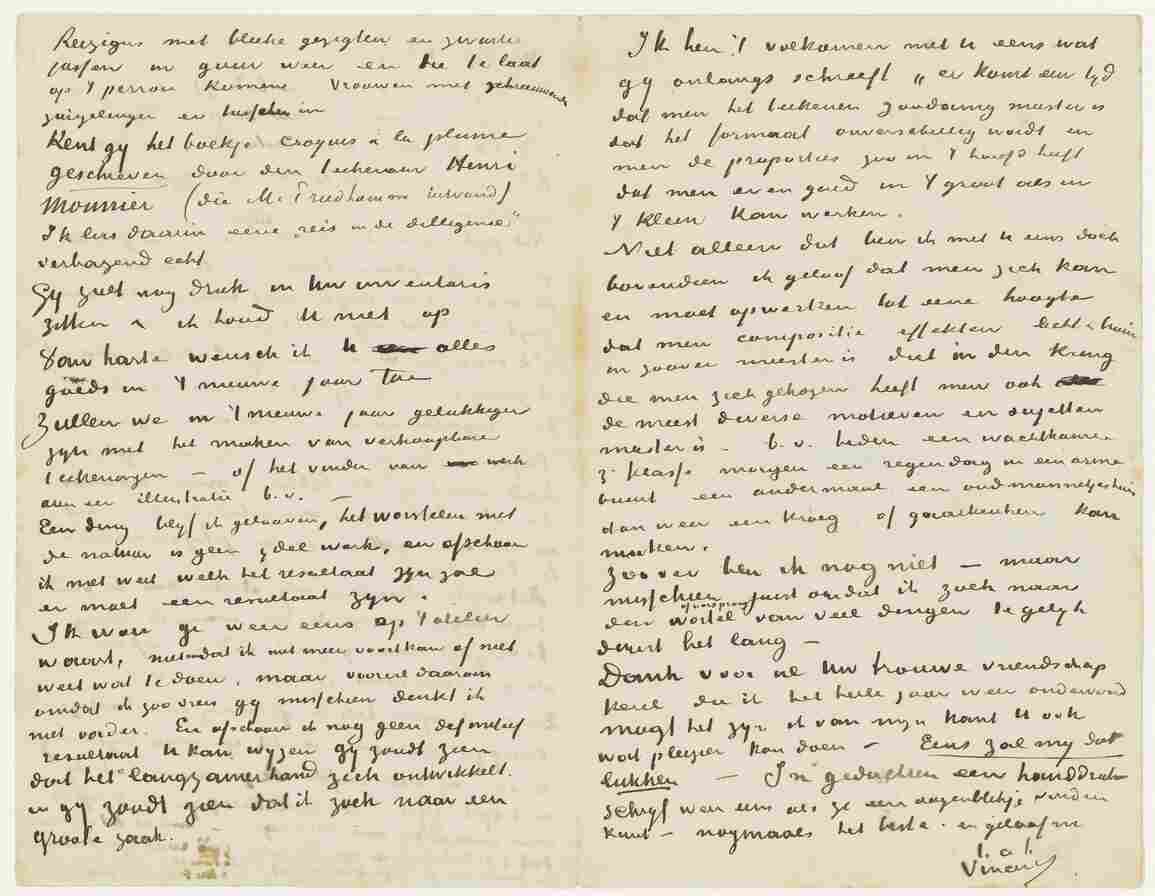 Reizigers met bleeke gezigten en zwarte
jassen in guur weer en die te laat
op 't perron komen. Vrouwen met schreeuwende
zuigelingen er tusschen in
Kent gy het boekje croquis à la plume
geschreven door den teekenaar Henri
Monnier (die Mc
Ik lees daarin eene „reis in de dilligence”
verbazend echt
Gy zult nog druk in Uw inventaris
zitten & ik houd U niet op
Van harte wensch ik U alles
goeds in 't nieuwe jaar toe
Zullen we in 't nieuwe jaar gelukkiger
zyn met het maken van verkoopbare
teekeningen – of het vinden van werk
aan een illustratie b.v. –
Een ding blyf ik gelooven, het worstelen met
de natuur is geen ydel werk, en ofschoon
ik niet weet welk het resultaat zyn zal
er moet een resultaat zyn.
Ik wou ge weer eens op 't atelier
waart, niet omdat ik niet meer voortkan of niet
weet wat te doen, maar vooral daarom
omdat ik zoo vrees gy misschien denkt ik
niet vorder. En ofschoon ik nog geen definitief
resultaat U kan wyzen gy zoudt zien
dat het langzamerhand zich ontwikkelt.
en gy zoudt zien dat ik zoek naar een
groote zaak.
Ik ben 't volkomen met U eens wat
gy onlangs schreeft „er komt een tyd
dat men het teekenen zoodanig meester is
dat het formaat onverschillig wordt en
men de proporties zoo in 't hoofd heeft
dat men even goed in 't groot als in
't klein kan werken.
Niet alleen dat ben ik met U eens doch
bovendien ik geloof dat men zich kan
en moet opwerken tot eene hoogte
dat men compositie effekten licht & bruin
in zoover meester is dat in den kring
die men zich gekozen heeft men ook
de meest diverse motieven en sujetten
meester is – b.v. heden een wachtkamer
3e klasse morgen een regendag in een arme
buurt een andermaal een oudmannetjeshuis
dan weer een kroeg of gaarkeuken kan
maken.
Zoover ben ik nog niet – maar
misschien juist omdat ik zoek naar
den wortel of oorsprong van veel dingen te gelyk
duurt het lang –
Dank voor al Uw trouwe vriendschap
kerel die ik het heele jaar weer ondervond
mogt het zyn ik van myn kant U ook
wat pleizier kan doen – Eens zal my dat
lukken – In gedachten een handdruk
schryf weer eens als ge een oogenblikje vinden
kunt – nogmaals het beste. en geloof me
t. à t.
Vincent